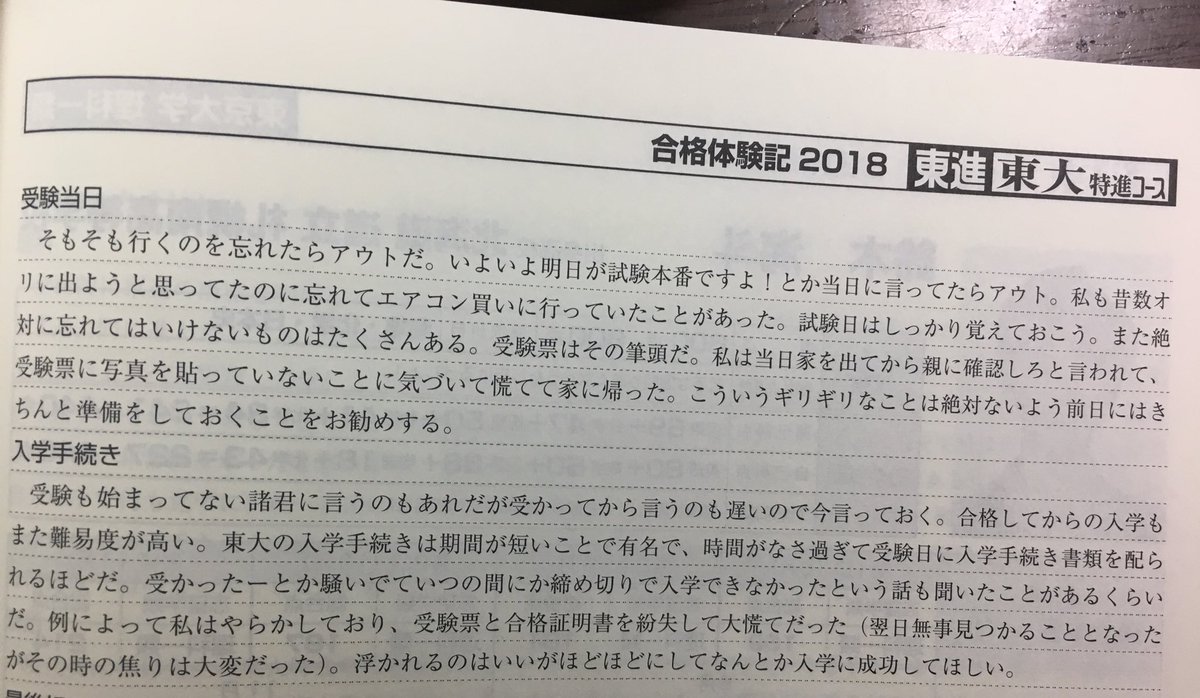 合格体験記 2018 東進 東大 特進コース
受験当日
そもそも行くのを忘れたらアウトだ。いよいよ明日が試験本番ですよ！とか当日に言ってたらアウト。私も昔数オ
リに出ようと思ってたのに忘れてエアコン買いに行っていたことがあった。試験日はしっかり覚えておこう。また絶
対に忘れてはいけないものはたくさんある。受験票はその筆頭だ。私は当日家を出てから親に確認しろと言われて、
受験票に写真を貼っていないことに気づいて慌てて家に帰った。こういうギリギリなことは絶対ないよう前日にはき
ちんと準備をしておくことをお勧めする。
入学手続き
受験も始まってない諸君に言うのもあれだが受かってから言うのも遅いので今言っておく。合格してからの入学も
また難易度が高い。東大の入学手続きは期間が短いことで有名で、時間がなさ過ぎて受験日に入学手続き書類を配ら
れるほどだ。受かったーとか騒いでていつの間にか締め切りで入学できなかったという話も聞いたことがあるくらい
だ。例によって私はやらかしており、受験票と合格証明書を紛失して大慌てだった（翌日無事見つかることとなった
がその時の焦りは大変だった）。浮かれるのはいいがほどほどにしてなんとか入学に成功してほしい。